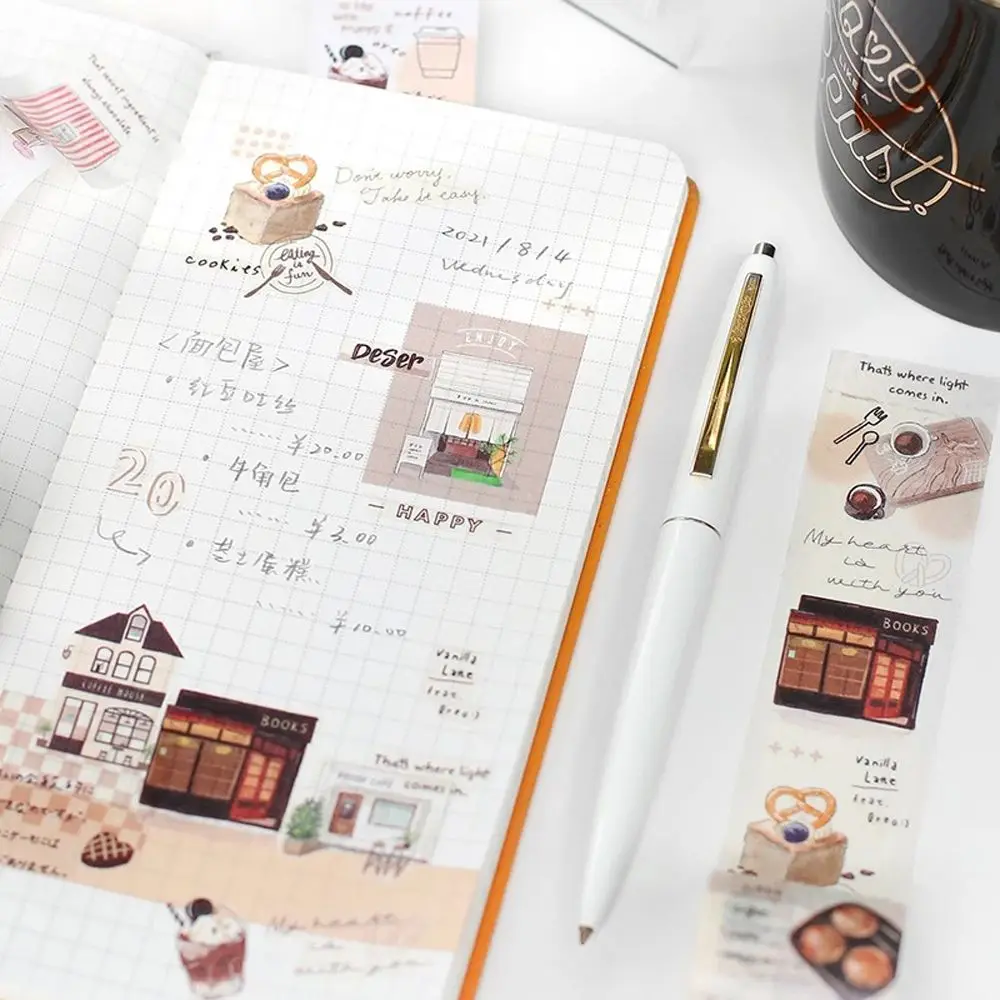 coffee
That secret ingredient is
always chocolate
Don't worry.
Take it easy.
2021/8/4
Wednesday
cookies
eating
is
fun
<面包屋>
• 红豆吐丝
...... ¥20.00
• 牛角包
...... ¥3.00
20
• 芝士蛋糕
...... ¥10.00
Deser
ENJOY
— HAPPY —
vanilla
Lane
feat.
Bread
COFFEE HOUSE
BOOKS
That's where light
comes in.
My heart
is
with you
LIKE A
Roast.
That's where light
comes in.
My heart
is
with you
BOOKS
vanilla
Lane
feat.
Bread